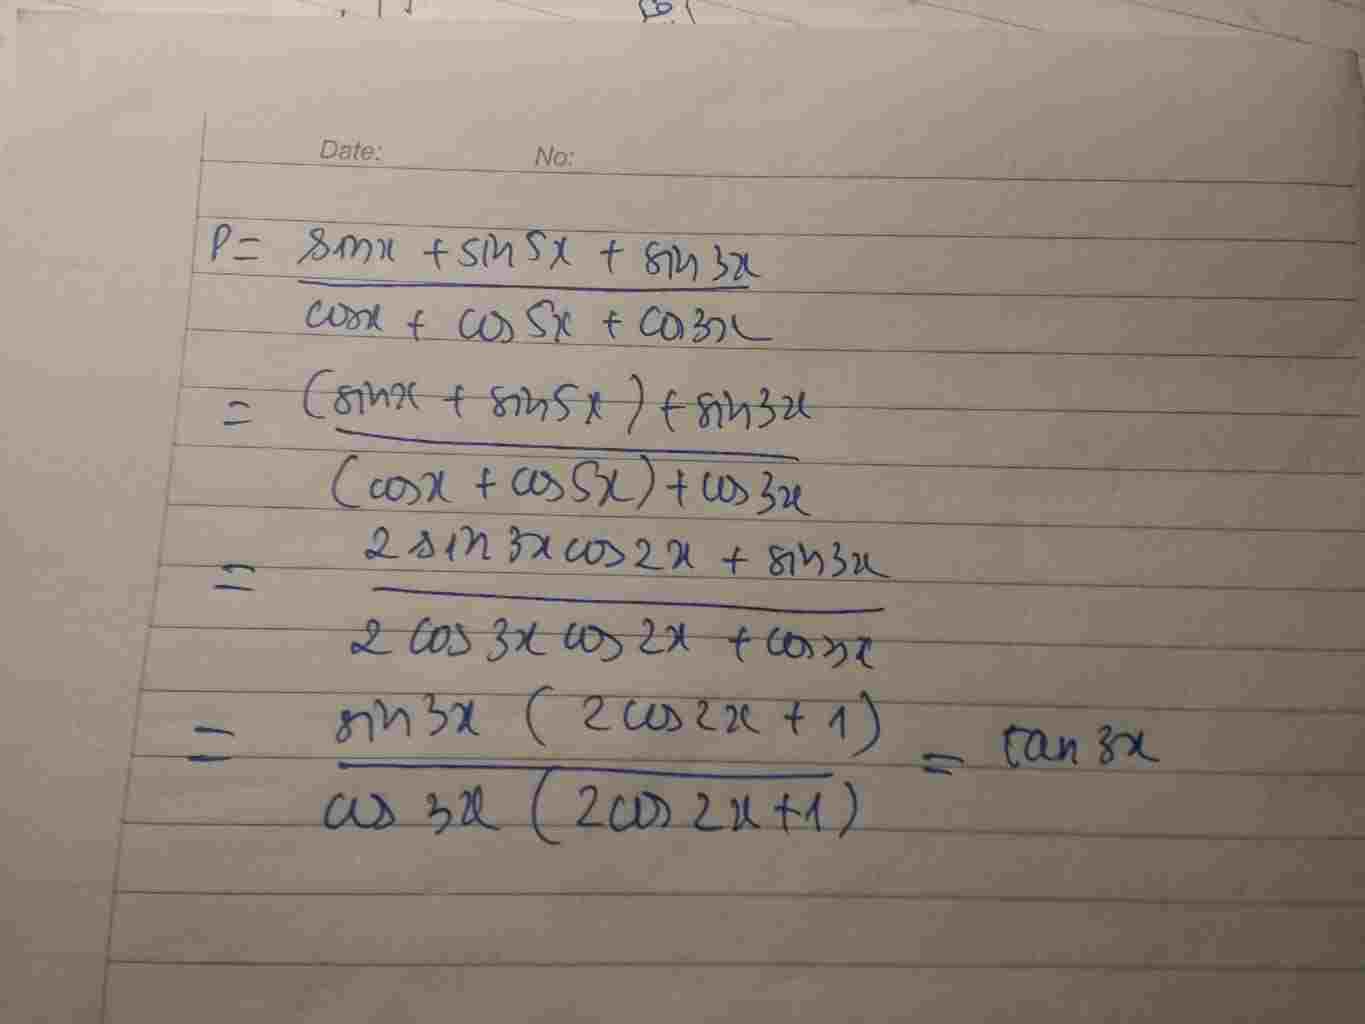 Date: No:
P = sinx + sin 5x + sin 3x
cosx + cos 5x + cos3x
= (sinx + sin5x) + sin3x
(cosx + cos5x) + cos 3x
= 2 sin 3x cos2x + sin3x
2 cos 3x cos 2x + cos3x
= sin3x (2cos2x + 1) = tan 3x
cos 3x (2cos 2x+1)